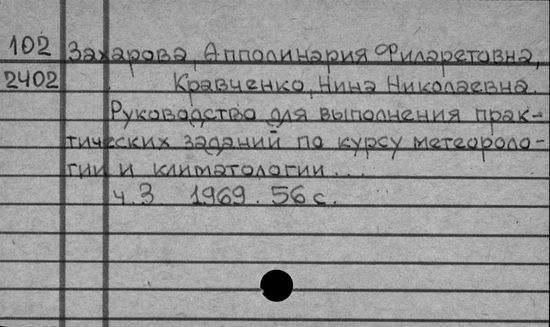 102 Захарова, Апполинария Филаретовна,
2402 Кравченко, Нина Николаевна.
Руководство для выполнения прак-
тических заданий по курсу метеороло-
гии и климатологии...
ч. 3 1969. 56 с.